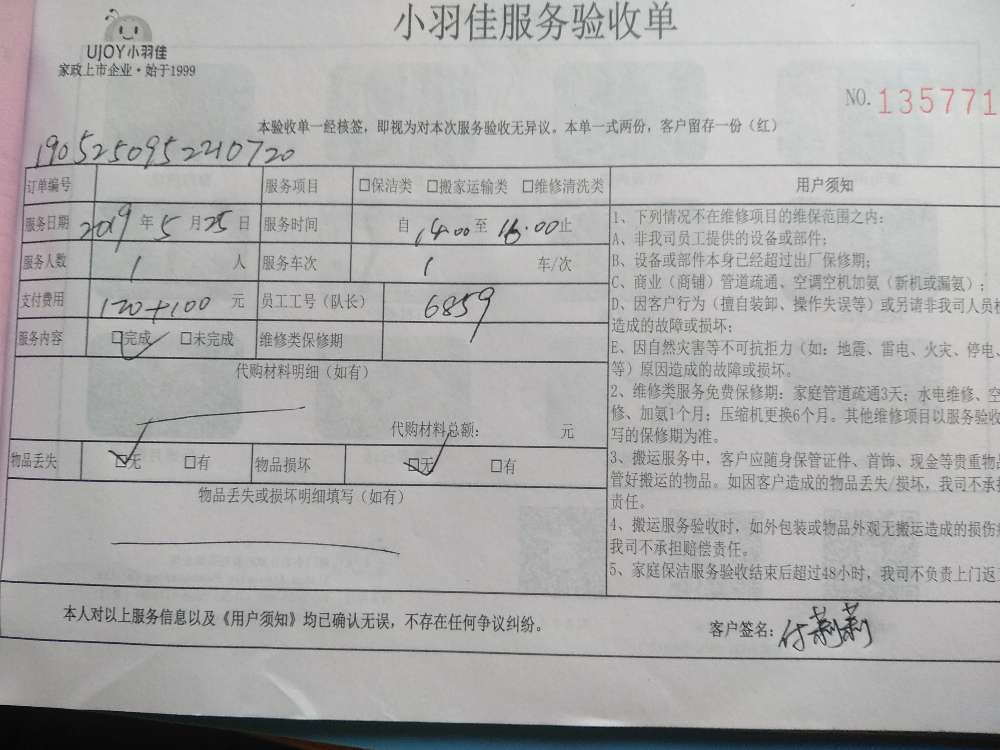 UJOY小羽佳
家政上市企业·始于1999
小羽佳服务验收单
NO.135771
本验收单一经核签，即视为对本次服务验收无异议。本单一式两份，客户留存一份（红）
1905250952210720
订单编号 服务项目 □保洁类 □搬家运输类 □维修清洗类
服务日期 2019 年 5 月 25 日 服务时间 自 14:00 至 16:00 止
服务人数 1 人 服务车次 1 车/次
支付费用 120+100 元 员工工号（队长） 6859
服务内容 □完成 □未完成 维修类保修期
代购材料明细（如有）
代购材料总额： 元
物品丢失 □无 □有 物品损坏 □无 □有
物品丢失或损坏明细填写（如有）
用户须知
1、下列情况不在维修项目的维保范围之内：
A、非我司员工提供的设备或部件；
B、设备或部件本身已经超过出厂保修期；
C、商业（商铺）管道疏通、空调空机加氨（新机或漏氨）；
D、因客户行为（擅自装卸、操作失误等）或另请非我司人员
造成的故障或损坏；
E、因自然灾害等不可抗拒力（如：地震、雷电、火灾、停电、
等）原因造成的故障或损坏。
2、维修类服务免费保修期：家庭管道疏通3天；水电维修、空
修、加氨1个月；压缩机更换6个月。其他维修项目以服务验收
写的保修期为准。
3、搬运服务中，客户应随身保管证件、首饰、现金等贵重物品
管好搬运的物品。如因客户造成的物品丢失/损坏，我司不承担
责任。
4、搬运服务验收时，如外包装或物品外观无搬运造成的损伤
我司不承担赔偿责任。
5、家庭保洁服务验收结束后超过48小时，我司不负责上门返
本人对以上服务信息以及《用户须知》均已确认无误，不存在任何争议纠纷。
客户签名：付莉莉